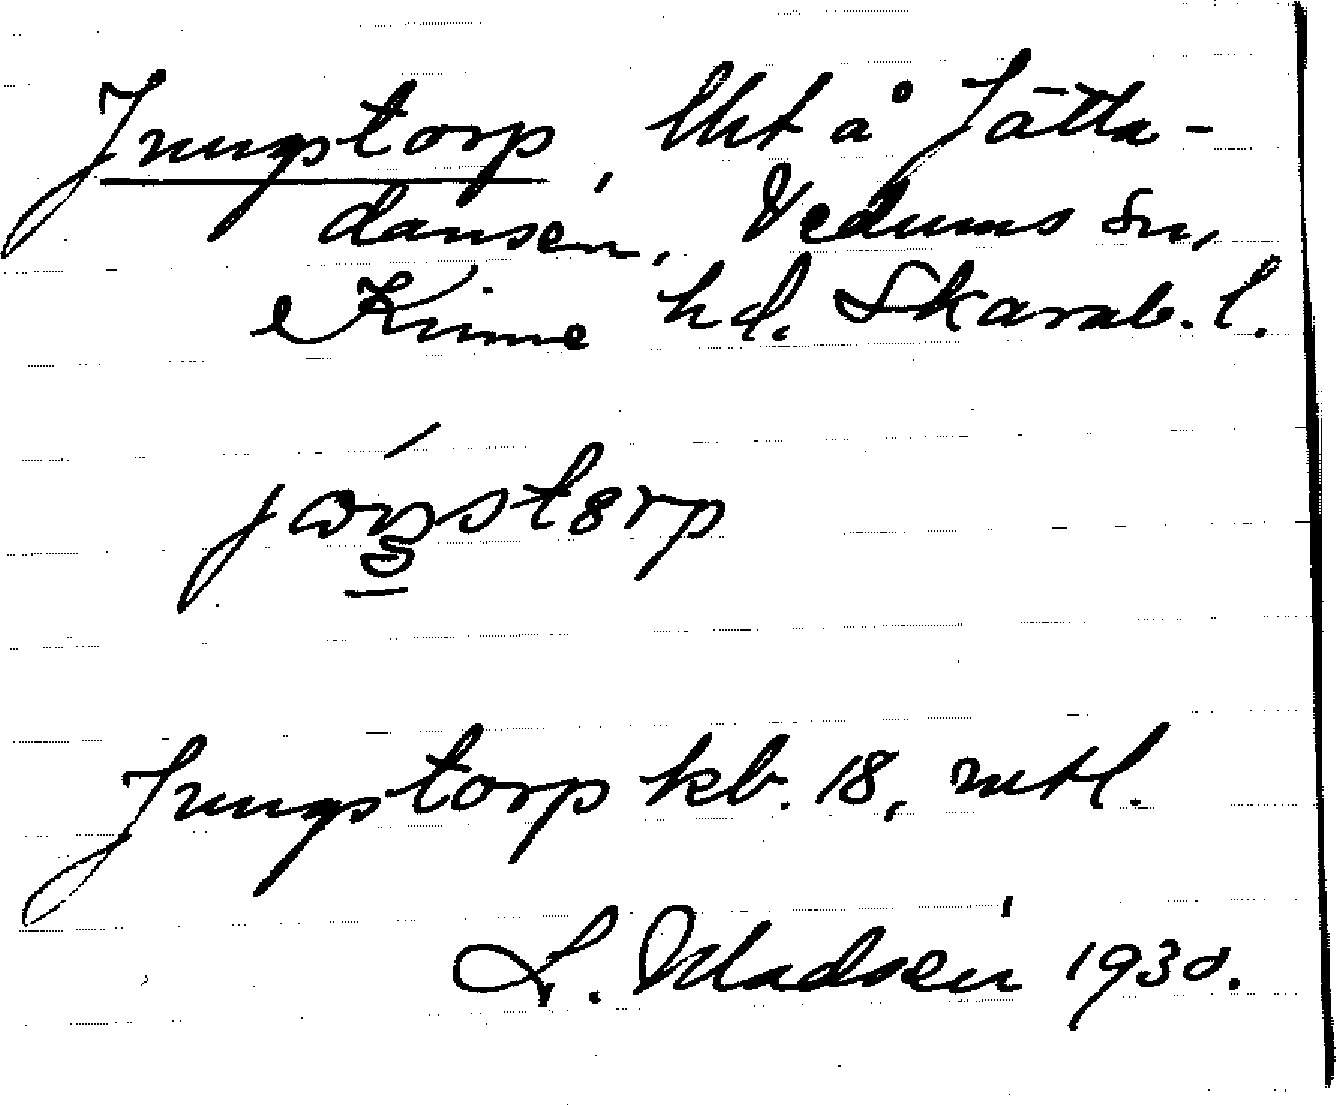 Jungstorp, lht å Jätta-
dansen, Vedums sn,
Kinne hd. Skarab. l.
jɷŋstɵrp
Jungstorp kb. 18, mtl.
L. Madsén 1930.